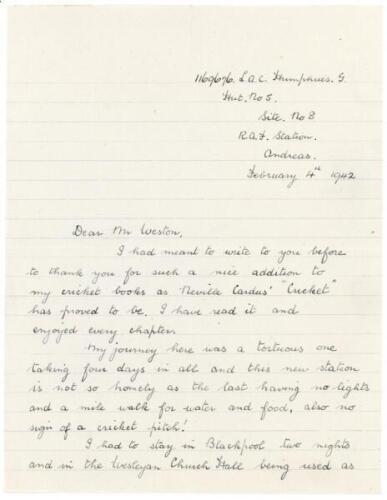 1169676. L.A.C. Humphries. G.
Hut. No 5.
Site. No 8
R.A.F. Station.
Andreas.
February 4th 1942
Dear Mr Weston,
I had meant to write to you before
to thank you for such a nice addition to
my cricket books as Neville Cardus' "Cricket"
has proved to be. I have read it and
enjoyed every chapter.
My journey here was a tortuous one
taking four days in all and this new station
is not so homely as the last having no lights
and a mile walk for water and food, also no
sign of a cricket pitch!
I had to stay in Blackpool two nights
and in the Wesleyan Church Hall being used as